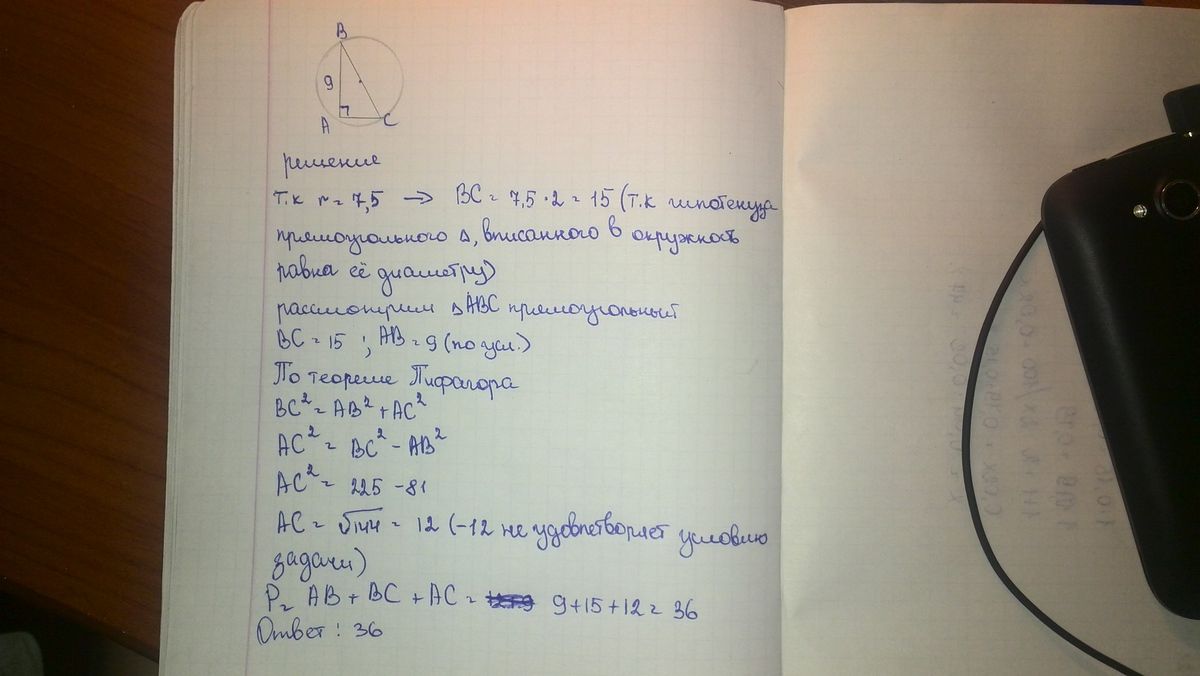 B
9
A
C
решение
т.к r = 7,5 → BC = 7,5 · 2 = 15 (т.к гипотенуза
прямоугольного Δ, вписанного в окружность
равна её диаметру)
рассмотрим ΔABC прямоугольный
BC = 15 ; AB = 9 (по усл.)
По теореме Пифагора
BC² = AB² + AC²
AC² = BC² - AB²
AC² = 225 - 81
AC = √144 = 12 (-12 не удовлетворяет условию
задачи)
P = AB + BC + AC = 9+15+12 = 36
Ответ : 36